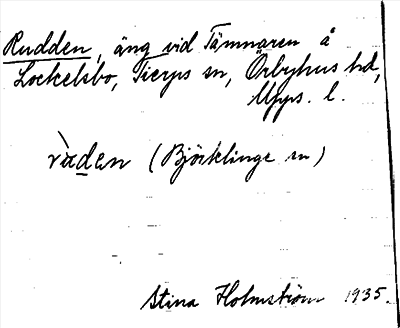 Rudden, äng vid Tämnaren å
Lockelsbo, Tierps sn, Örbyhus hd,
Upps. l.
ràden (Björklinge sn)
Stina Holmström 1935.